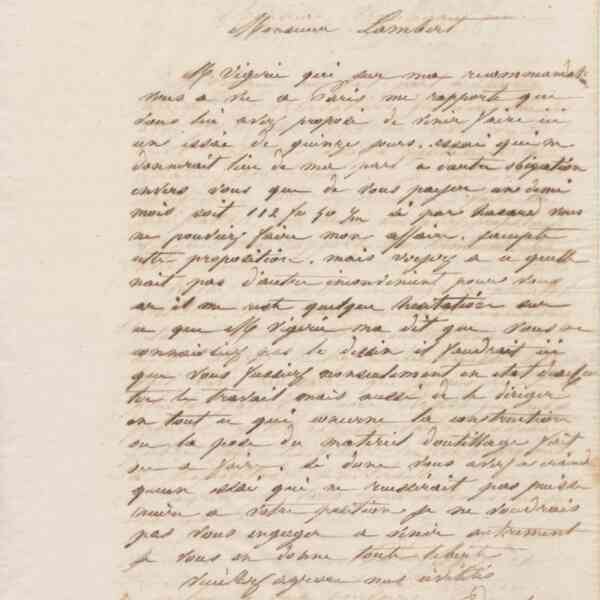 Monsieur Lambert
Mr Vigerie qui sur ma recommandat
vous a vu a Paris me rapporte que
vous lui avez proposé de venir faire ici
un essai de quinze jours. essai qui ne
donnerait lieu de ma part a d'autre obligation
envers vous que de vous payer un demi
mois soit 112 fr 50 si par hasard vous
ne pouviez faire mon affaire. j'accepte
cette proposition. mais voyez a ce quelle
nait pas d'autre inconvenient pour vous
car il me reste quelque hesitation sur
ce que Mr Vigerie ma dit que vous ne
connaissiez pas le dessin il faudrait ici
que vous fussiez nonseulement en etat
le travail mais aussi de le diriger
en tout ce qui concerne la construction
ou la pose du materiel d'outillage fait
ou a faire. Si donc vous avez a craindre
quun essai qui ne reussirait pas puisse
nuire a votre position je ne voudrais
pas vous engager a venir autrement
je vous en donne toute liberté
Veuillez agreer mes civilités